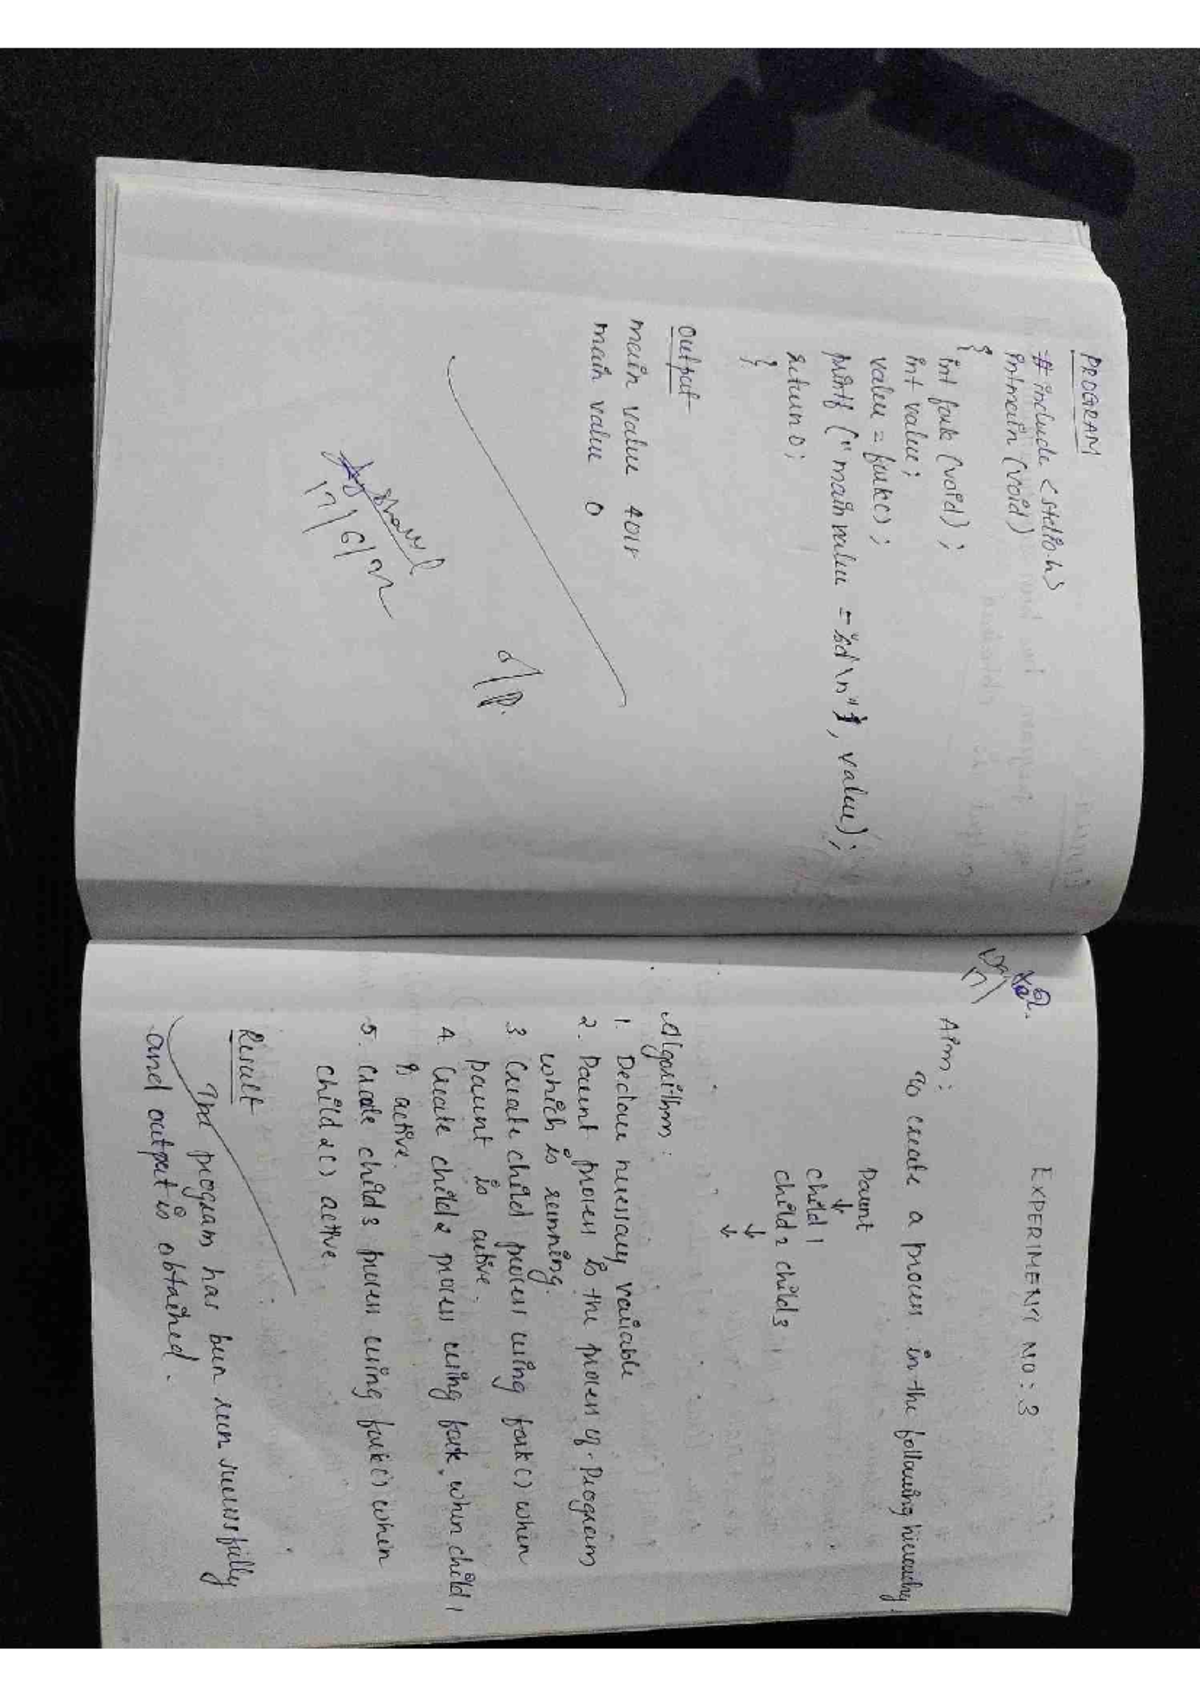 PROGRAM
# include <stdio.h>
int main (void)
{
int fork (void) ;
int value;
value = fork() ;
printf (" main value = %d\n" , value) ;
return 0 ;
}
Output
main value 4018
main value 0
17/6/22
EXPERIMENT NO : 3
Aim :
to create a process in the following hierarchy
Parent
↓
child 1
child 2 child 3
↓
↓
Algorithm :
1. Declare necessary variable
2. Parent process is the process of Program
which is running.
3. Create child process using fork() when
parent is active.
4. Create child 2 process using fork, when child 1
is active.
5. Create child 3 process using fork() when
child 2() active.
Result
The program has been seen successfully
and output is obtained.